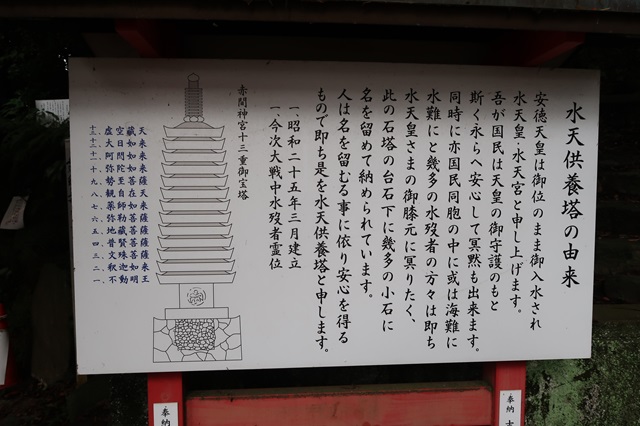 水天供養塔の由来
安徳天皇は御位のまま御入水され
水天皇・水天宮と申し上げます。
吾が国民は天皇の御守護のもと
斯く永らへ安心して冥黙も出来ます。
同時に亦国民同胞の中に或は海難に
水難にと幾多の水歿者の方々は即ち
水天皇さまの御膝元に冥りたく、
此の石塔の台石下に幾多の小石に
名を留めて納められています。
人は名を留むる事に依り安心を得る
もので即ち是を水天供養塔と申します。
一、昭和二十五年三月建立
一、今次大戦中水歿者霊位
赤間神宮十三重御宝塔
十三、虚空蔵天
十二、大日如来
十一、阿閦如来
十、阿弥陀如来
九、勢至菩薩
八、観自在天
七、薬師如来
六、弥勒菩薩
五、地蔵菩薩
四、普賢菩薩
三、文珠菩薩
二、釈迦如来
一、不動明王
奉納
奉納